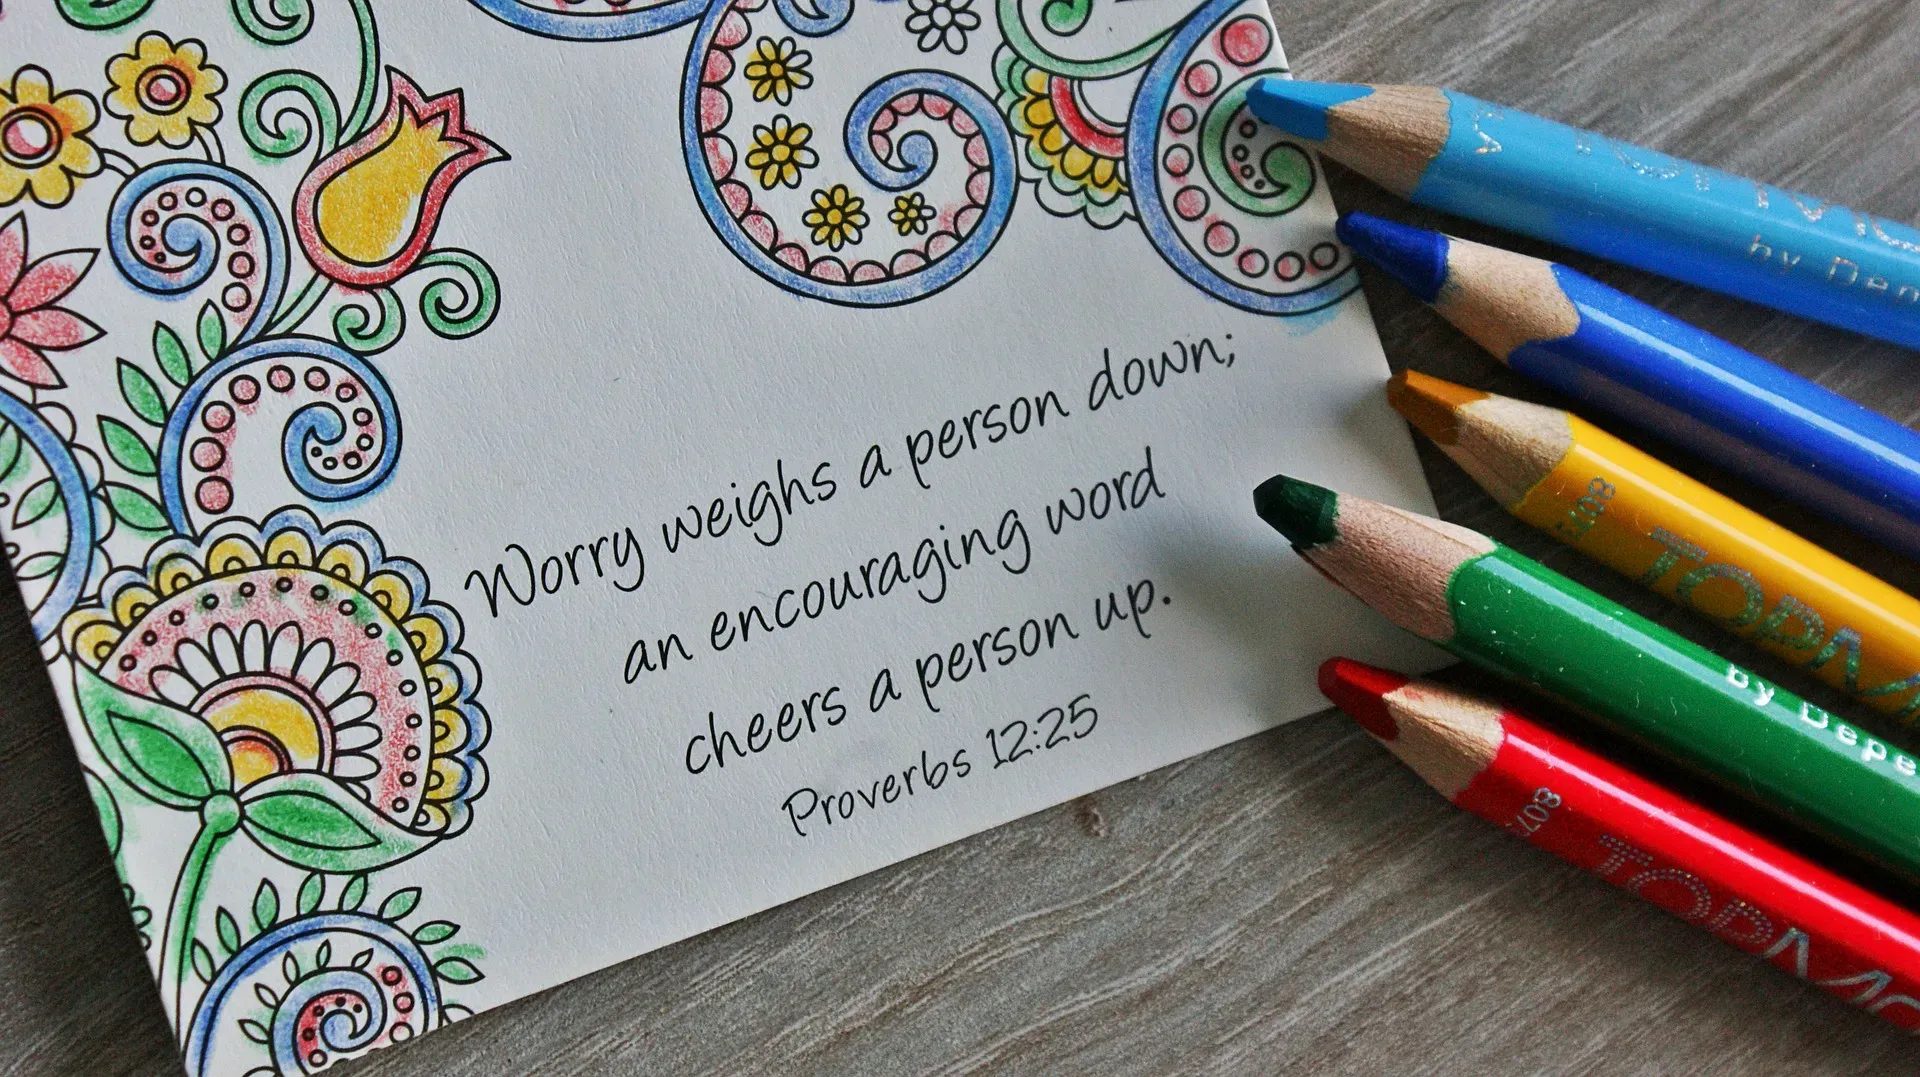 Worry weighs a person down;
an encouraging word
cheers a person up.
Proverbs 12:25
by Den
TOPM
by Depe